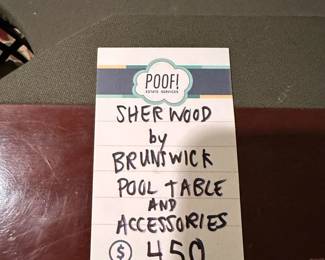 POOF!
ESTATE SERVICES
SHERWOOD
by
BRUNSWICK
POOL TABLE
AND
ACCESSORIES
$ 450